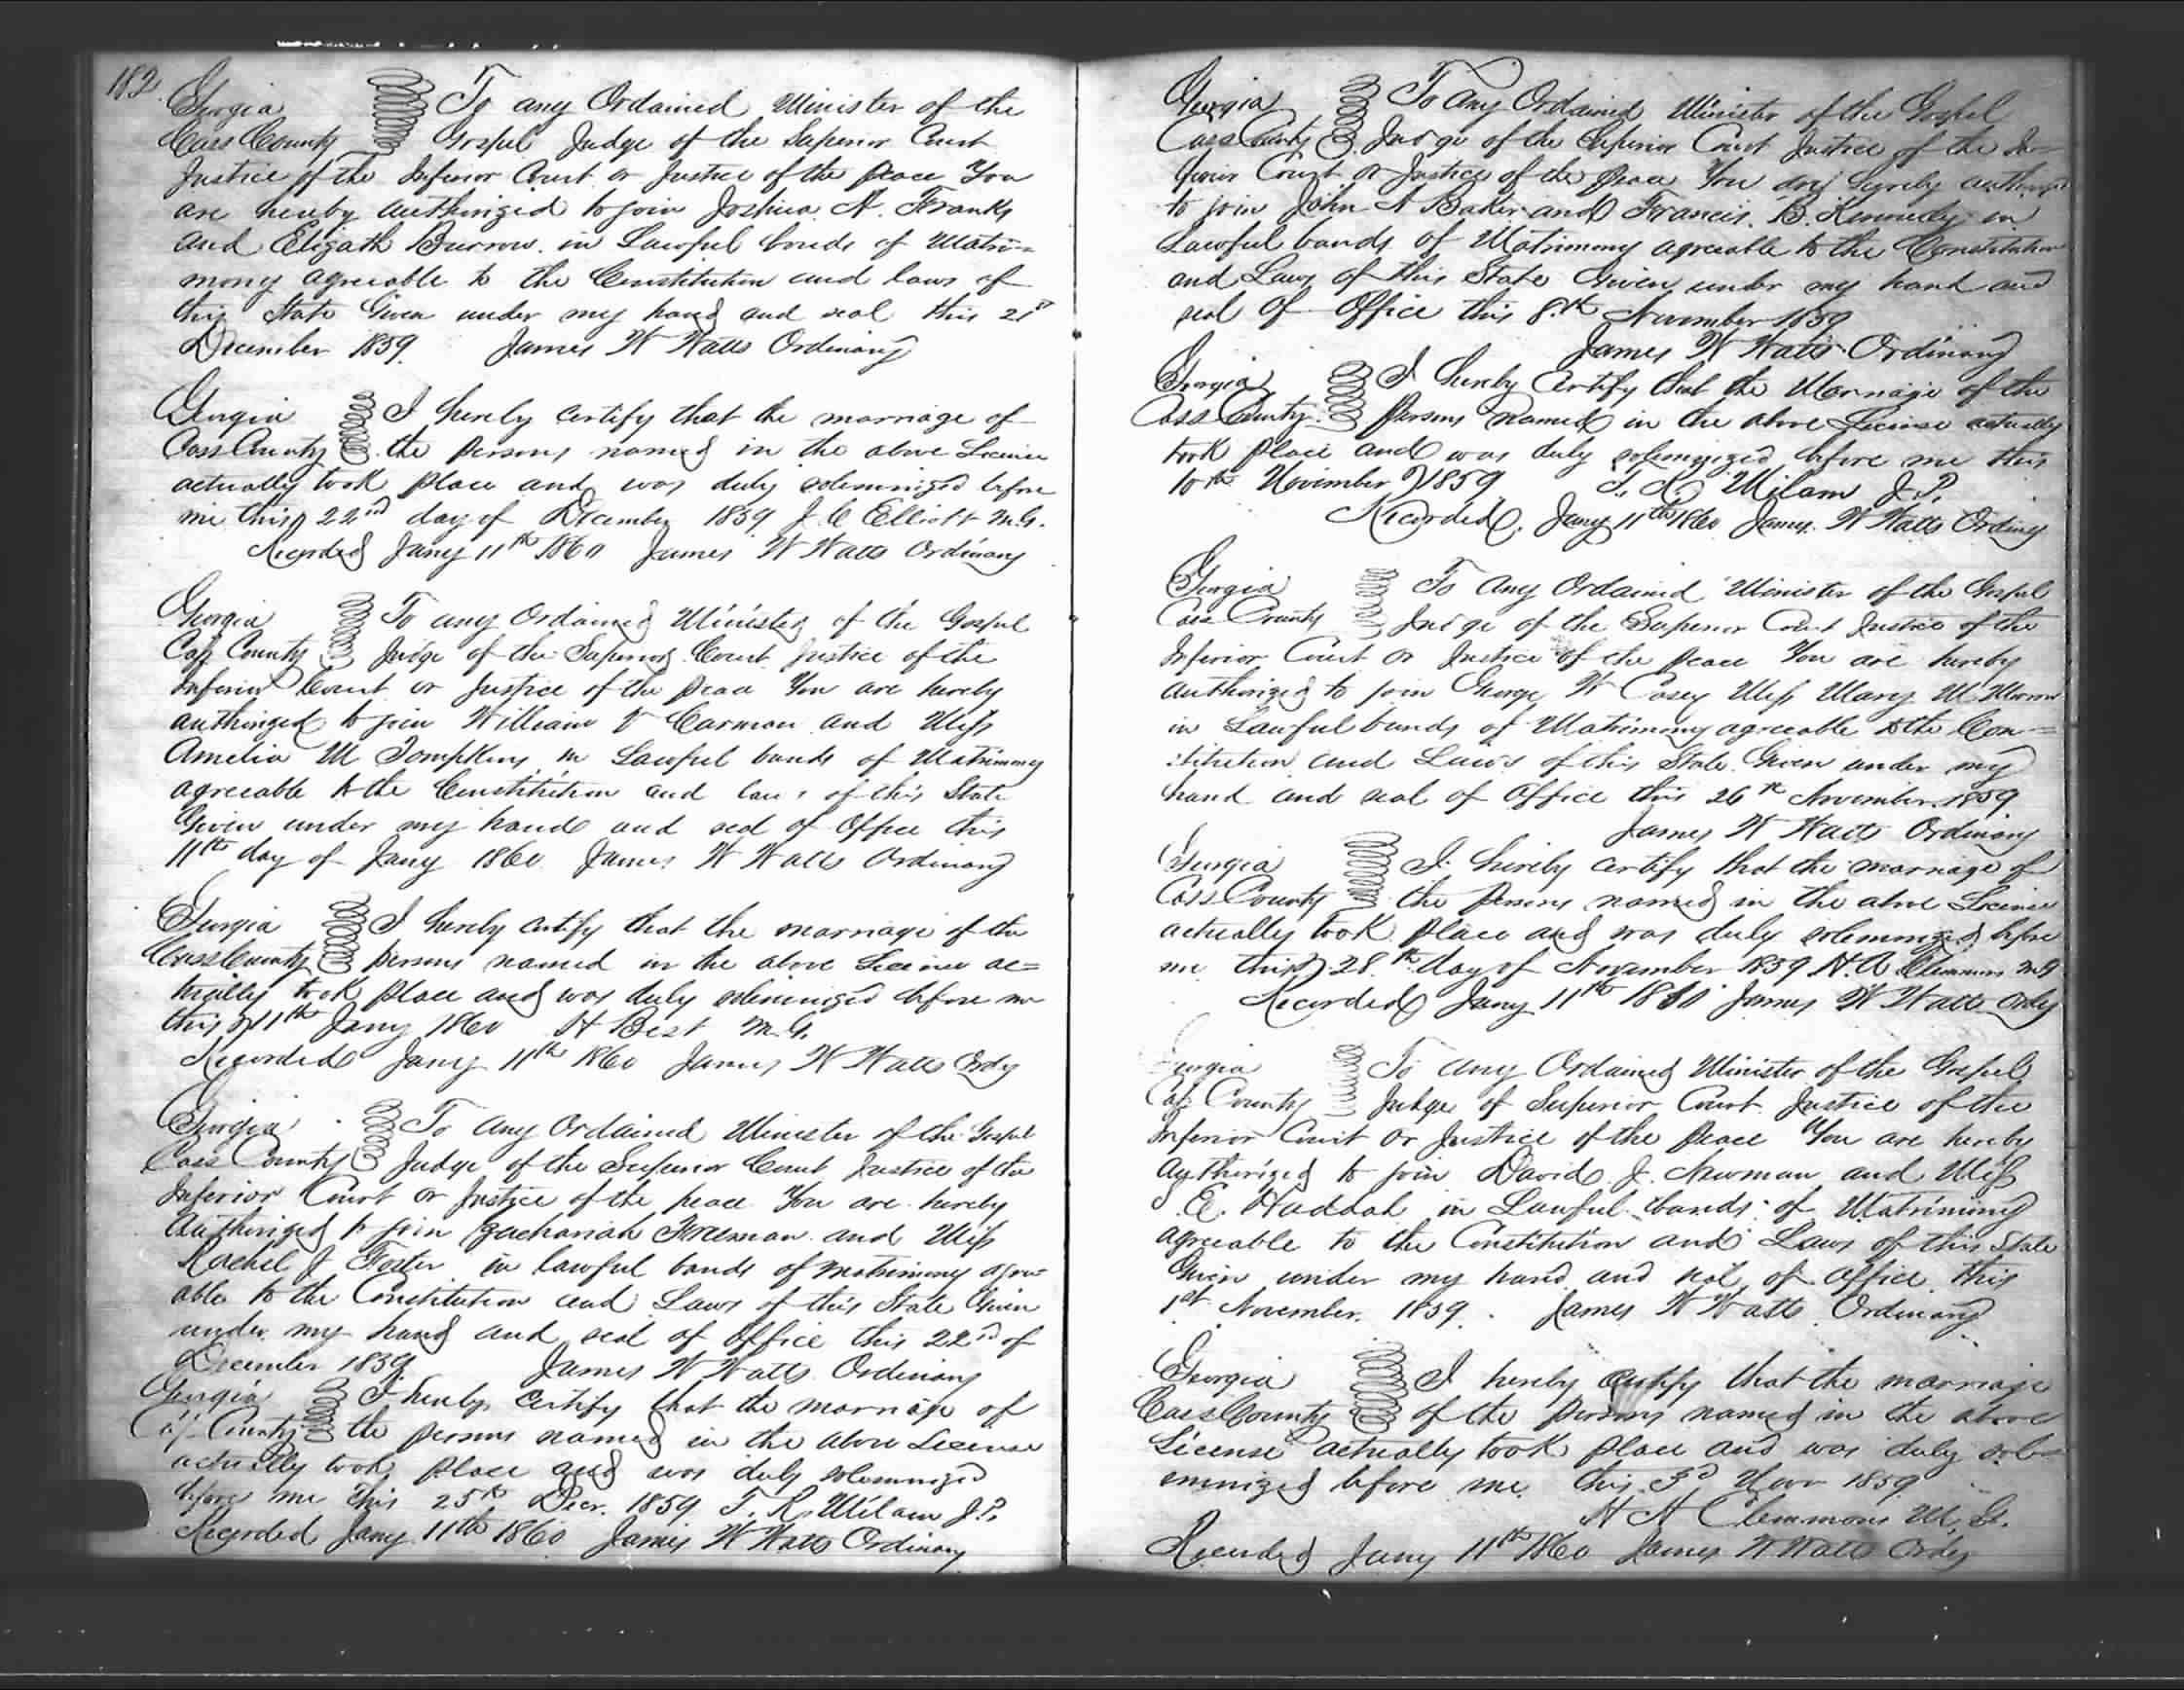 182
Georgia To any Ordained Minister of the
Cass County Gospel Judge of the Superior Court
Justice of the Inferior Court or Justice of the peace You
are hereby authorized to join Joshua N. Franks
and Elizath Burrow in Lawful bonds of Matri=
mony agreeable to the Constitution and laws of
this State Given under my hand and seal this 21st
December 1859. James W Watts Ordinary
Georgia I hereby certify that the marriage of
Cass County the persons named in the above License
actually took place and was duly solemnized before
me this 22nd day of December 1859 J. C Elliott M.G.
Recorded Jany 11th 1860 James W Watts Ordinary
Georgia To any Ordained Minister of the Gospel
Cass County Judge of the Superior Court Justice of the
Inferior Court or Justice of the peace You are hereby
authorized to join William V Carmon and Miss
Amelia M Tompkins in Lawful bonds of Matrimony
agreeable to the Constitution and laws of this State
Given under my hand and seal of Office this
11th day of Jany 1860 James W Watts Ordinary
Georgia I hereby certify that the marriage of the
Cass County persons named in the above License ac=
tually took place and was duly solemnized before me
this 11th Jany 1860 H Best M.G.
Recorded Jany 11th 1860 James W Watts Ordy
Georgia To any Ordained Minister of the Gospel
Cass County Judge of the Superior Court Justice of the
Inferior Court or Justice of the peace You are hereby
Authorized to join Zachariah Freeman and Miss
Rachel J Foster in lawful bonds of matrimony agree-
able to the Constitution and Laws of this State Given
under my hand and seal of office this 22nd of
December 1859. James W Watts Ordinary
Georgia I hereby certify that the marriage of
Cass County the persons named in the above License
actually took place and was duly solemnized
before me this 25th Decr. 1859 T. R. Milam J.P.
Recorded Jany 11th 1860 James W Watts Ordinary
Georgia To any Ordained Minister of the Gospel
Cass County Judge of the Superior Court Justice of the In=
ferior Court or Justice of the peace You are hereby authorized
to join John A Baker and Francis. B. Kennedy in
Lawful bands of Matrimony agreeable to the Constitution
and Laws of this State Given under my hand and
seal of Office this 8th November 1859
James W Watts Ordinary
Georgia I hereby Certify that the Marriage of the
Cass County persons named in the above License actually
took place and was duly solemnized before me this
10th November 1859 T. R. Milam J.P.
Recorded. Jany 11th 1860 James W Watts Ordiny
Georgia To any Ordained Minister of the Gospel
Cass County Judge of the Superior Court Justice of the
Inferior Court or Justice of the peace You are hereby
authorized to join George W Casey Miss Mary M
in Lawful bands of Matrimony agreeable to the Con=
stitution and Laws of this State. Given under my
hand and seal of Office this 26th November 1859
James W Watts Ordinary
Georgia I hereby certify that the marriage of
Cass County the persons named in the above License
actually took place and was duly solemnized before
me this 28th day of November 1859 H. A Clemmons MG
Recorded Jany 11th 1860 James W Watts Ordy
Georgia To any Ordained Minister of the Gospel
Cass County Judge of Superior Court Justice of the
Inferior Court or Justice of the peace You are hereby
authorized to join David J. Newman and Miss
E. Haddah in Lawful bands of Matrimony
agreeable to the Constitution and Laws of this State
Given under my hand and seal of office this
1st November. 1859. James W Watts Ordinary
Georgia I hereby certify that the marriage
Cass County of the persons named in the above
License actually took place and was duly sol=
emnized before me this 3d Novr 1859
H A Clemmons M.G.
Recorded Jany 11th 1860 James W Watts Ordy